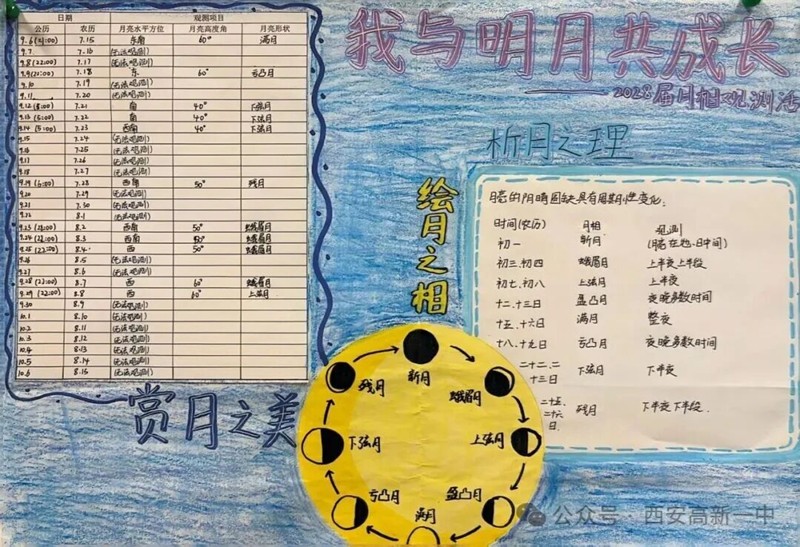 我与明月共成长
2028届月相观测活
日期 观测项目
公历 农历 月亮水平方位 月亮高度角 月亮形状
9.6(21:00) 7.15 东南 60° 满月
9.7 7.16 (无法观测)
9.8(22:00) 7.17 (无法观测)
9.9(21:00) 7.18 东 60° 亏凸月
9.10 7.19 (无法观测)
9.11 7.20 (无法观测)
9.12(8:00) 7.21 南 40° 下弦月
9.13(5:00) 7.22 南 40° 下弦月
9.14(5:00) 7.23 西南 40° 下弦月
9.15 7.24 (无法观测)
9.16 7.25 (无法观测)
9.17 7.26 (无法观测)
9.18 7.27 (无法观测)
9.19(6:00) 7.28 西南 50° 残月
9.20 7.29 (无法观测)
9.21 7.30 (无法观测)
9.22 8.1 (无法观测)
8.2 西南 50° 蛾眉月
8.3 西南 蛾眉月
8.4 西 50° 蛾眉月
9.26 8.5 (无法观测)
9.27 8.6 (无法观测)
8.7 西 60° 蛾眉月
9.29(22:00) 8.8 西 60° 上弦月
9.30 8.9 (无法观测)
10.1 8.10 (无法观测)
10.2 8.11 (无法观测)
10.3 8.12 (无法观测)
10.4 8.13 (无法观测)
10.5 8.14 (无法观测)
10.6 8.15 (无法观测)
赏月之美
绘月之相
新月
蛾眉月
上弦月
盈凸月
满月
亏凸月
下弦月
残月
析月之理
月亮的阴晴圆缺具有周期性变化:
时间(农历) 月相 观测
初一 新月 (月亮在地、日中间)
初三、初四 蛾眉月 上半夜上半段
初七、初八 上弦月 上半夜
十二、十三日 盈凸月 夜晚多数时间
十五、十六日 满月 整夜
十八、十九日 亏凸月 夜晚多数时间
二十二、二
十三日 下弦月 下半夜
二十五、
二十六
日 残月 下半夜下半段.
公众号·西安高新一中